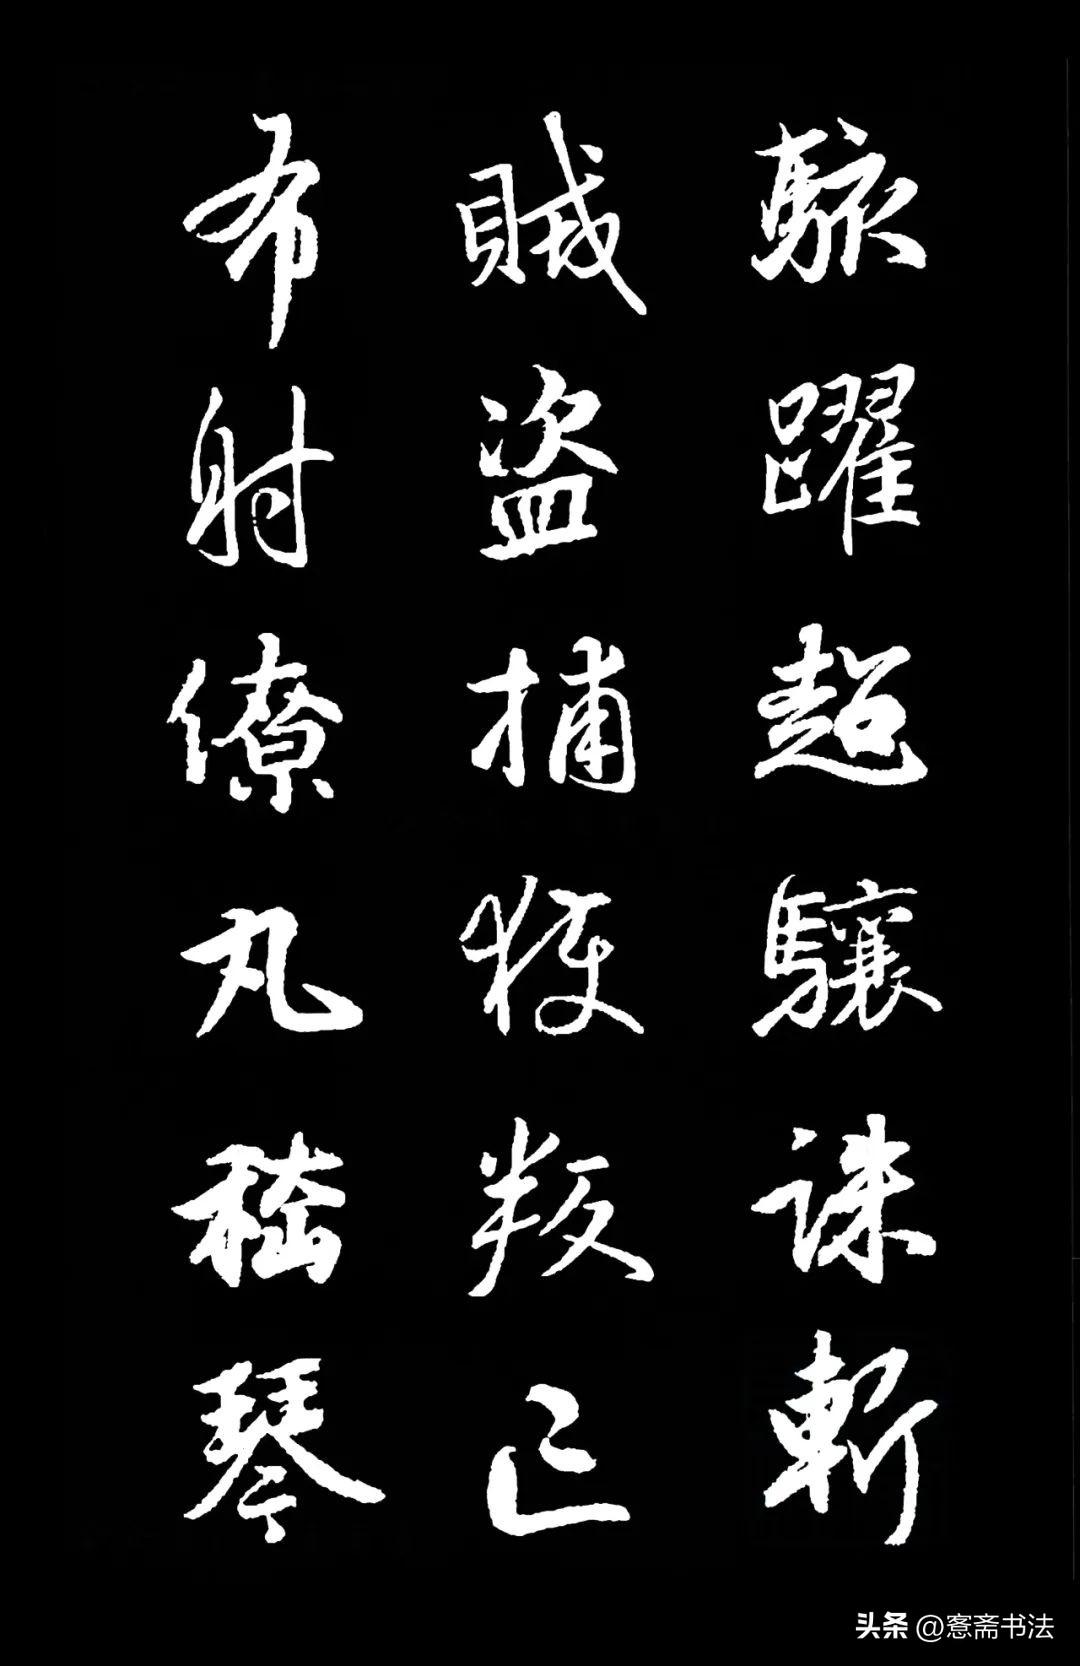 駭躍超驤誅斬
賊盜捕獲叛亡
布射僚丸嵇琴
头条@愙斋书法